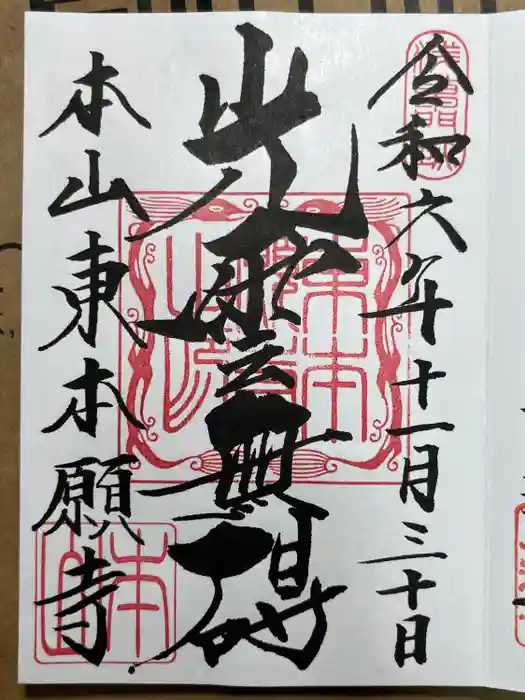 令和六年十一月三十日
光雲無碍
本山東本願寺